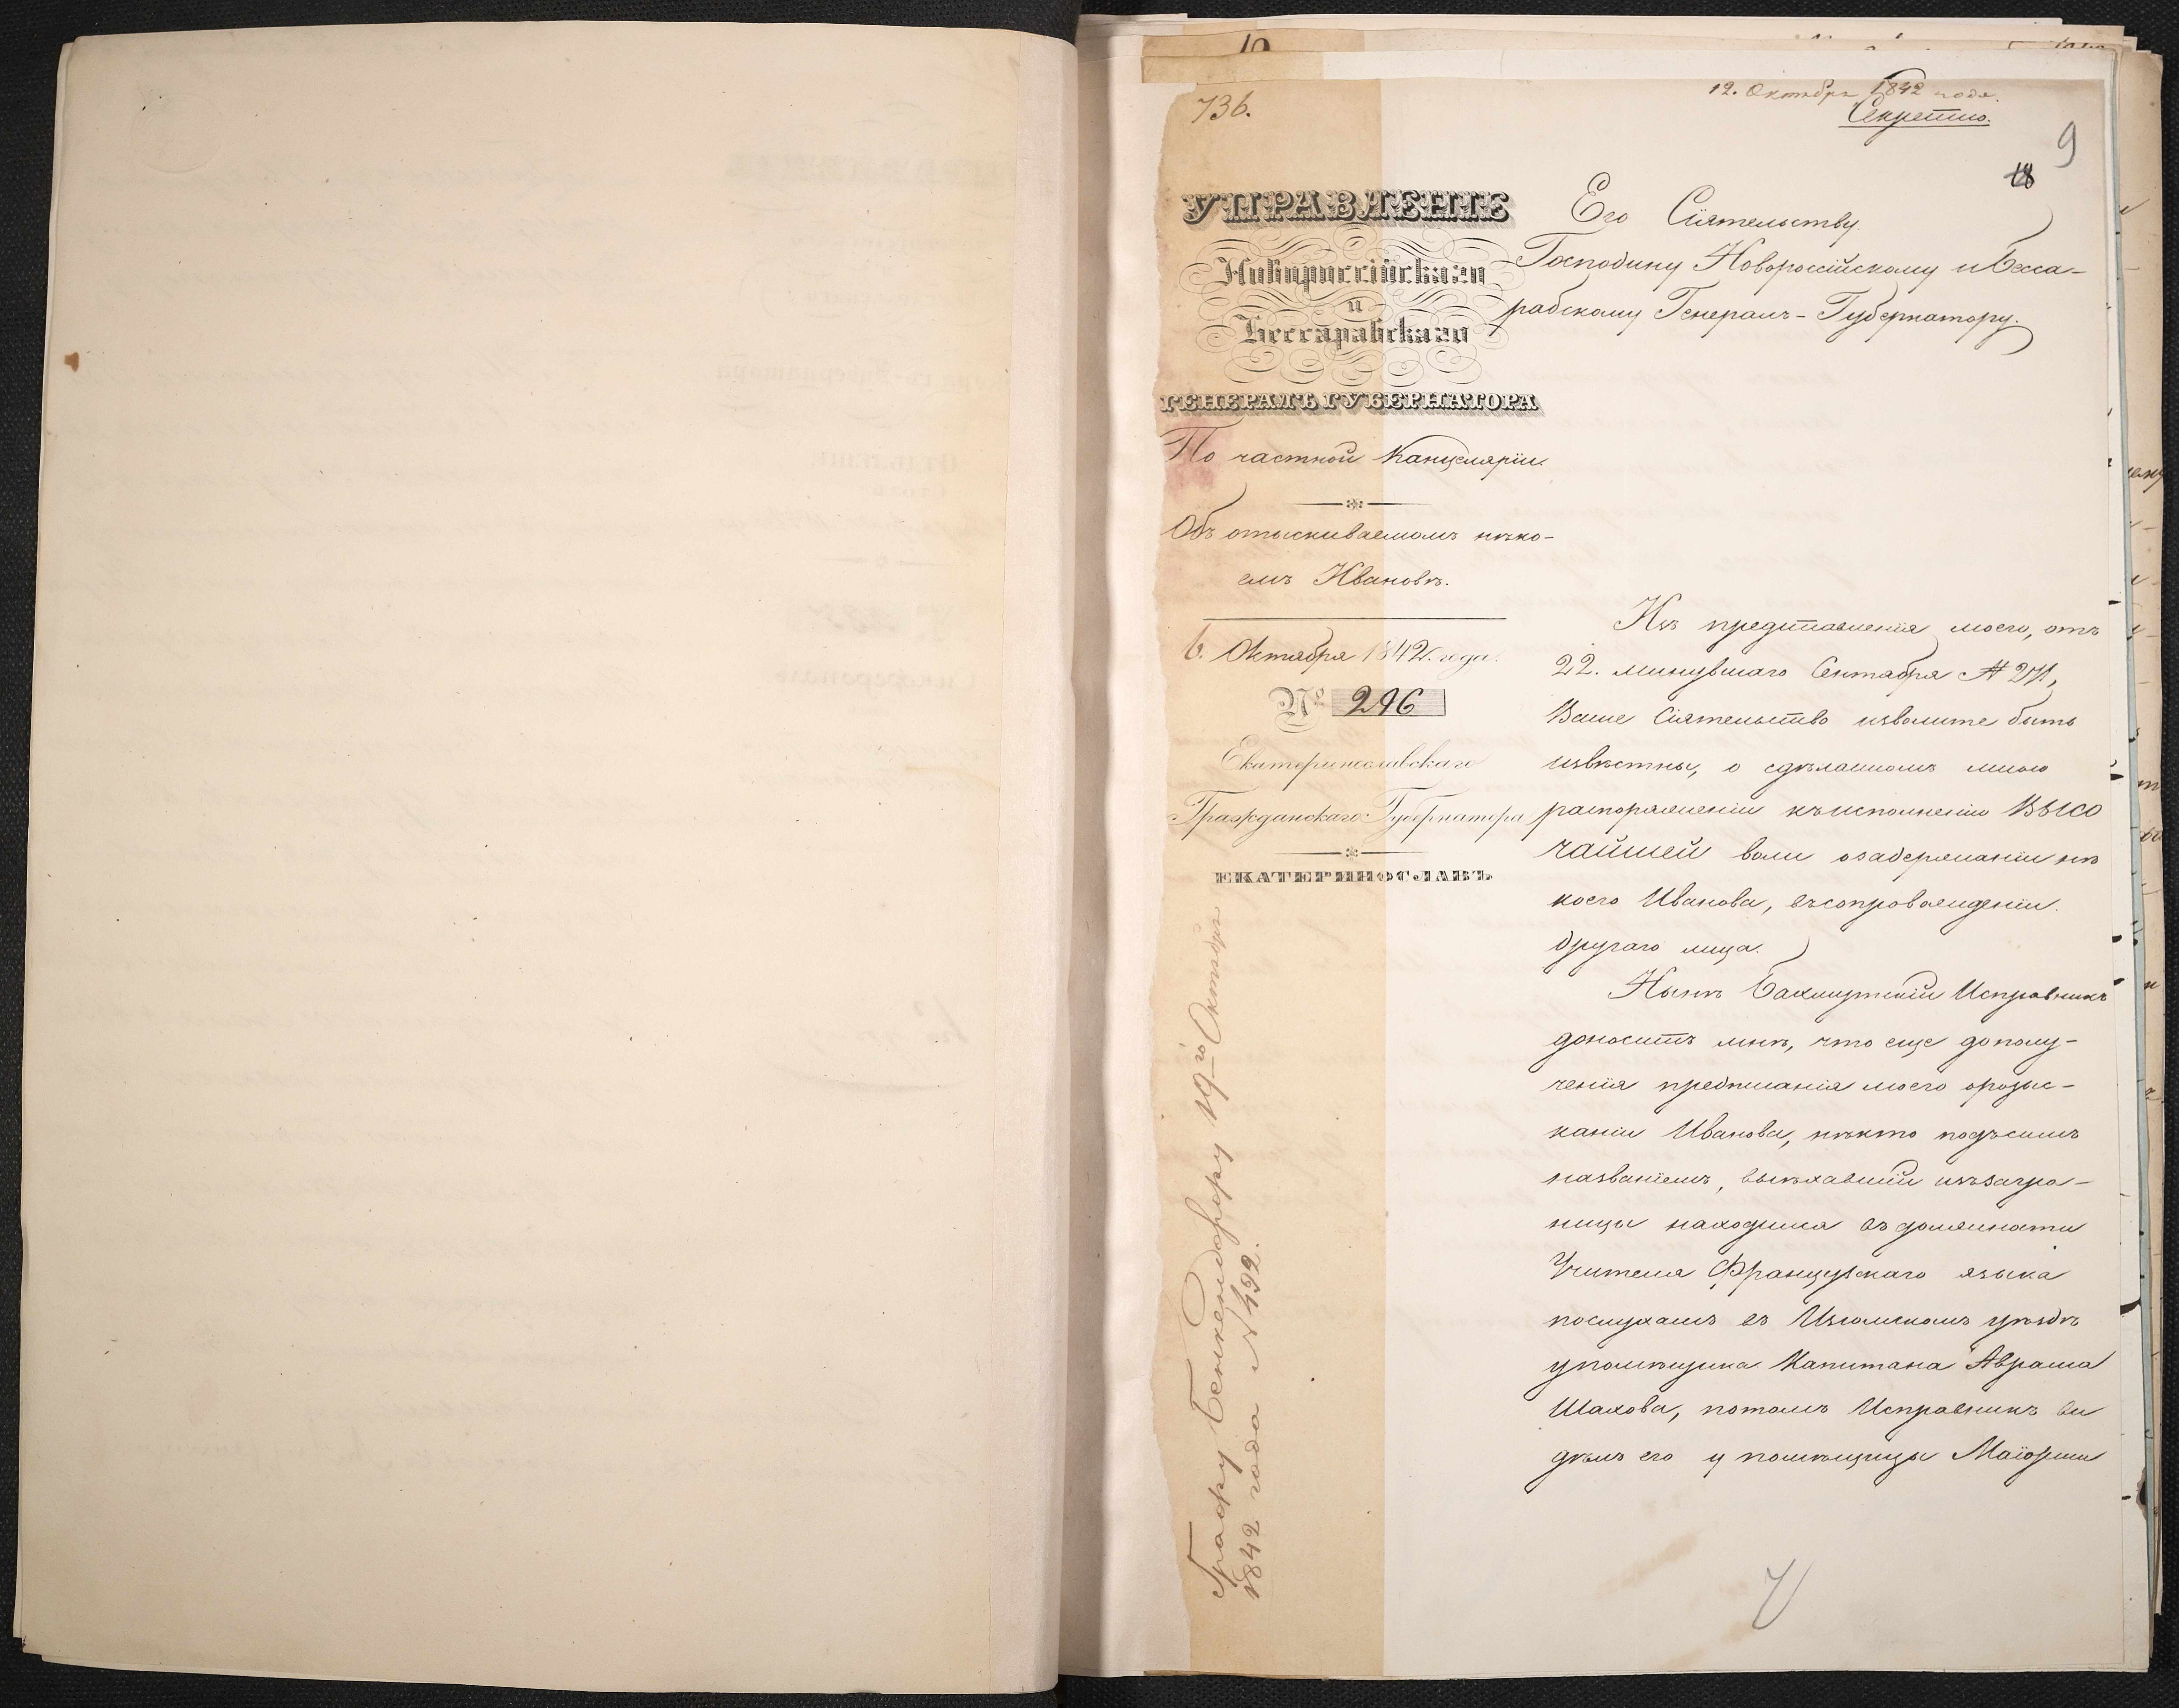 736.
12. Октября 1842 года.
Секретно.
9
18
УПРАВЛЕНІЕ
Новороссійскаго
и
Бессарабскаго
ГЕНЕРАЛЪ ГУБЕРНАТОРА
По частной Канцеляріи.
Объ отыскиваемомъ нѣко-
емъ Ивановѣ.
6. Октября 1842. года.
№ 296
Екатеринославскаго
Гражданскаго Губернатора
ЕКАТЕРИНОСЛАВЪ
Графу Бенкендорфу 19-го Октября
1842 года №492.
Его Сіятельству
Господину Новороссійскому и Бесса-
рабскому Генералъ-Губернатору.
Изъ представленія моего, отъ
22. минувшаго Сентября № 271,
Ваше Сіятельство изволите быть
извѣстны, о сдѣланномъ мною
распоряженіи къ исполненію Высо
чайшей воли о задержаніи нѣ
коего Иванова, въ сопровожденіи
другаго лица.
Нынѣ Бахмутскій Исправникъ
доноситъ мнѣ, что еще до полу-
ченія предписанія моего о розыс-
каніи Иванова, нѣкто подъ симъ
названіемъ, выѣхавшій изъ загра-
ницы находился въ должности
Учителя Французскаго языка
по слухамъ въ Изюмскомъ уѣздѣ
у помѣщика Капитана Аврама
Шахова, потомъ Исправникъ ви
дѣлъ его у помѣщицы Маіорши